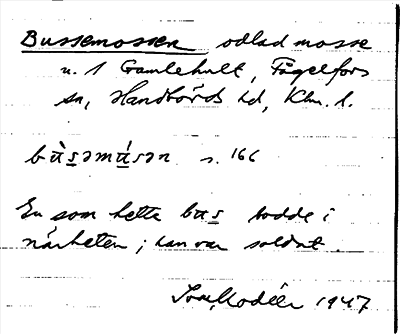 Bussemossen odlad mosse
u. 1 Gamlehult, Fågelfors
sn, Handbörds hd, Klm. l.
bùsəmúsən s. 166
En som hette bus bodde i
närheten; han var soldat.
Ivar Modéer 1947